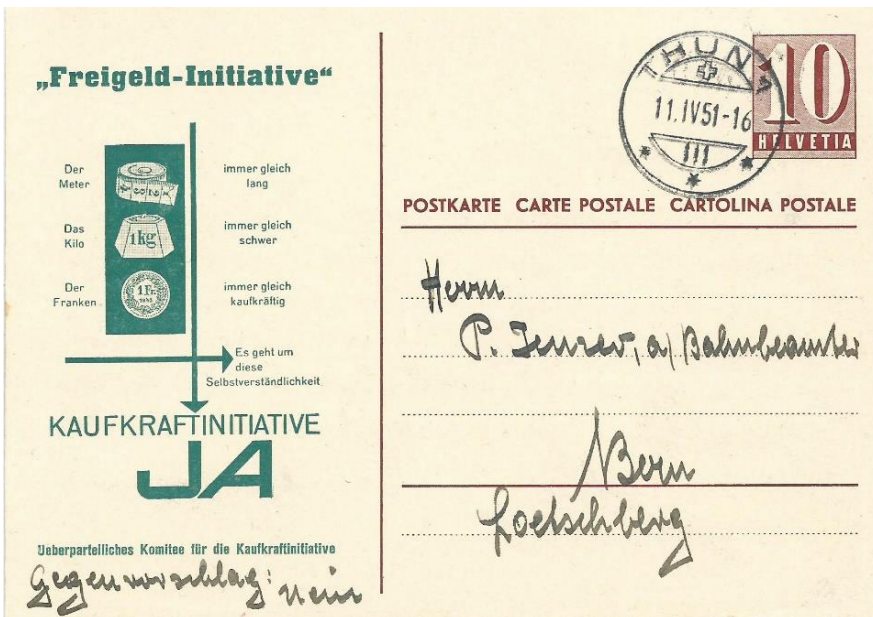 „Freigeld-Initiative“
Der Meter
immer gleich lang
Das Kilo
1kg
immer gleich schwer
Der Franken
1 Fr.
immer gleich kaufkräftig
Es geht um
diese
Selbstverständlichkeit
KAUFKRAFTINITIATIVE
JA
Ueberparteiliches Komitee für die Kaufkraftinitiative
Gegenvorschlag: nein
THUN 1
11.IV.51-16
III
10
HELVETIA
POSTKARTE CARTE POSTALE CARTOLINA POSTALE
Herrn
P. a/Bahnbeamter
Bern
Loetschberg